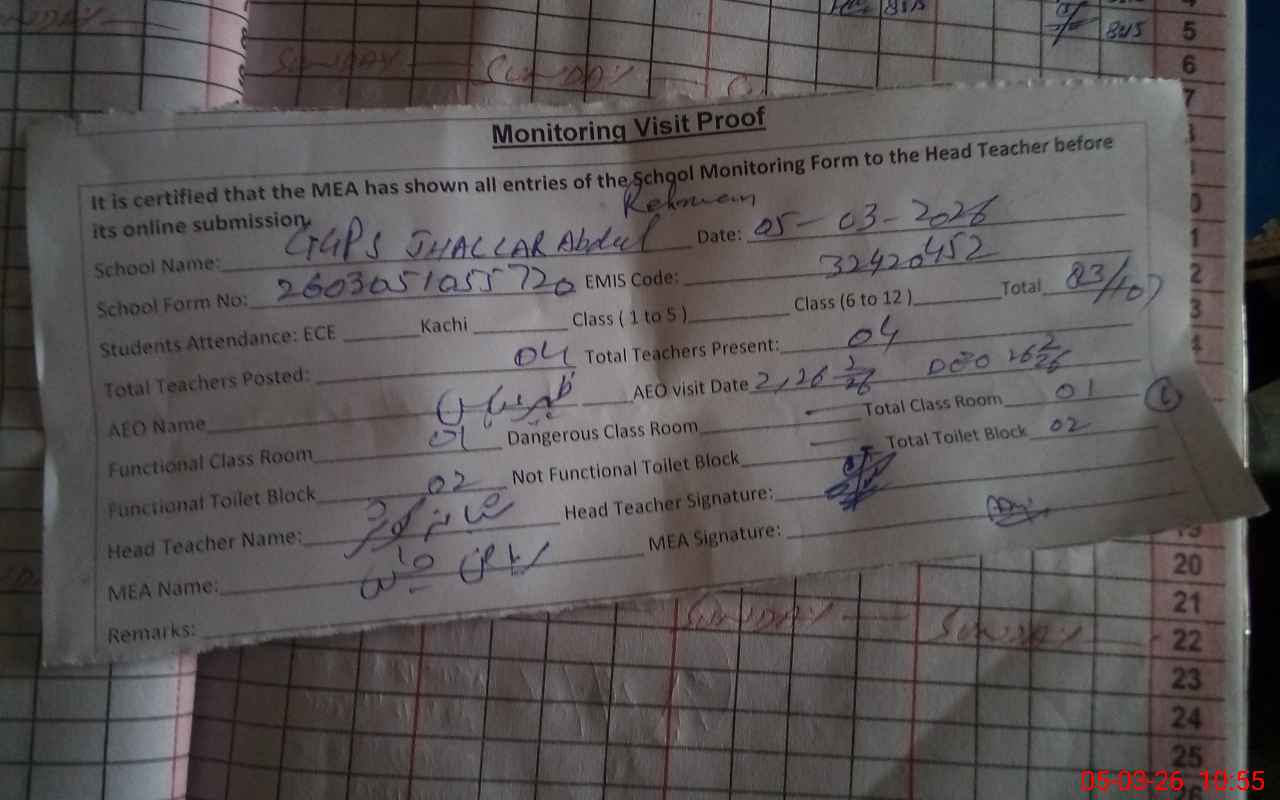 SUNDAY
SUNDAY SUNDAY
815
845
5
6
7
Monitoring Visit Proof
It is certified that the MEA has shown all entries of the School Monitoring Form to the Head Teacher before
its online submission.
Rehman
School Name: GGPS JHALLAR Abdul Date: 05-03-2026
School Form No: 2603051055720 EMIS Code: 32420452
Students Attendance: ECE Kachi Class ( 1 to 5 ) Class (6 to 12 ) Total 83/107
Total Teachers Posted: 04 Total Teachers Present: 04
AEO Name AEO visit Date 2, 26 2/26 DEO 26 2/26
Functional Class Room 01 Dangerous Class Room — Total Class Room 01
Functional Toilet Block 02 Not Functional Toilet Block — Total Toilet Block 02
Head Teacher Name: Head Teacher Signature:
MEA Name: MEA Signature:
Remarks:
SUNDAY SUNDAY
20
21
22
23
24
25
05-03-26 10:55